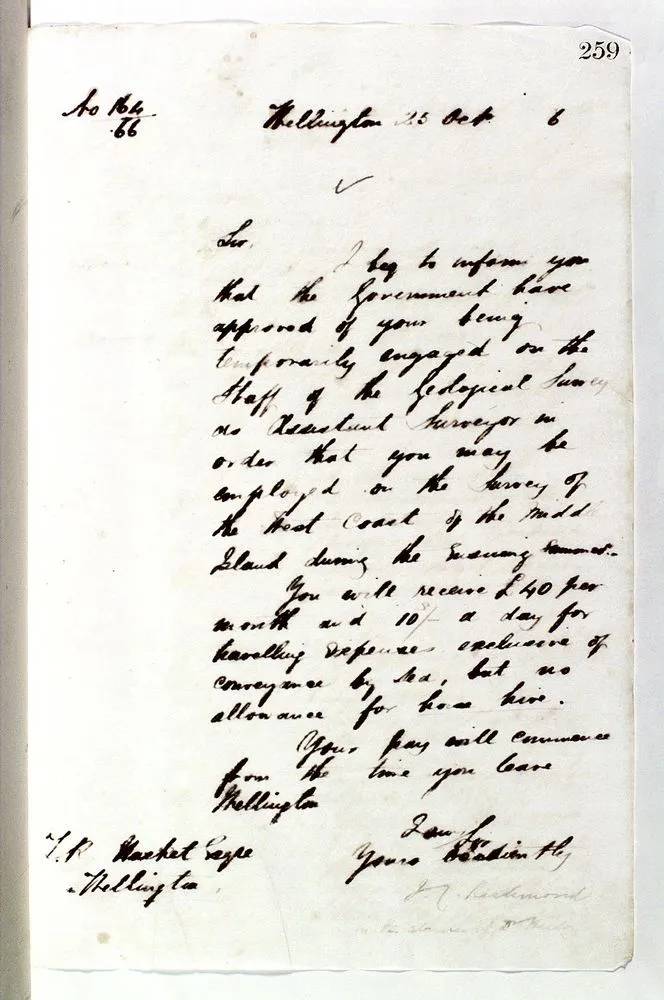 259
No 164/66
Wellington 25 Oct 6
Sir,
I beg to inform you
that the Government have
approved of your being
temporarily engaged on the
Staff of the Geological Survey
as Assistant Surveyor in
order that you may be
employed on the Survey of
the West Coast of the Midd
Island during the Ensuing Summer.
You will receive £40 per
month and 10/- a day for
travelling Expenses exclusive of
conveyance by Sea, but no
allowance for horse hire.
Your pay will commence
from the time you leave
Wellington
I am Sir
Yours Obediently
J. C. Richmond
in the absence of Dr Hector
T. R. Hacket Esqre
Wellington.